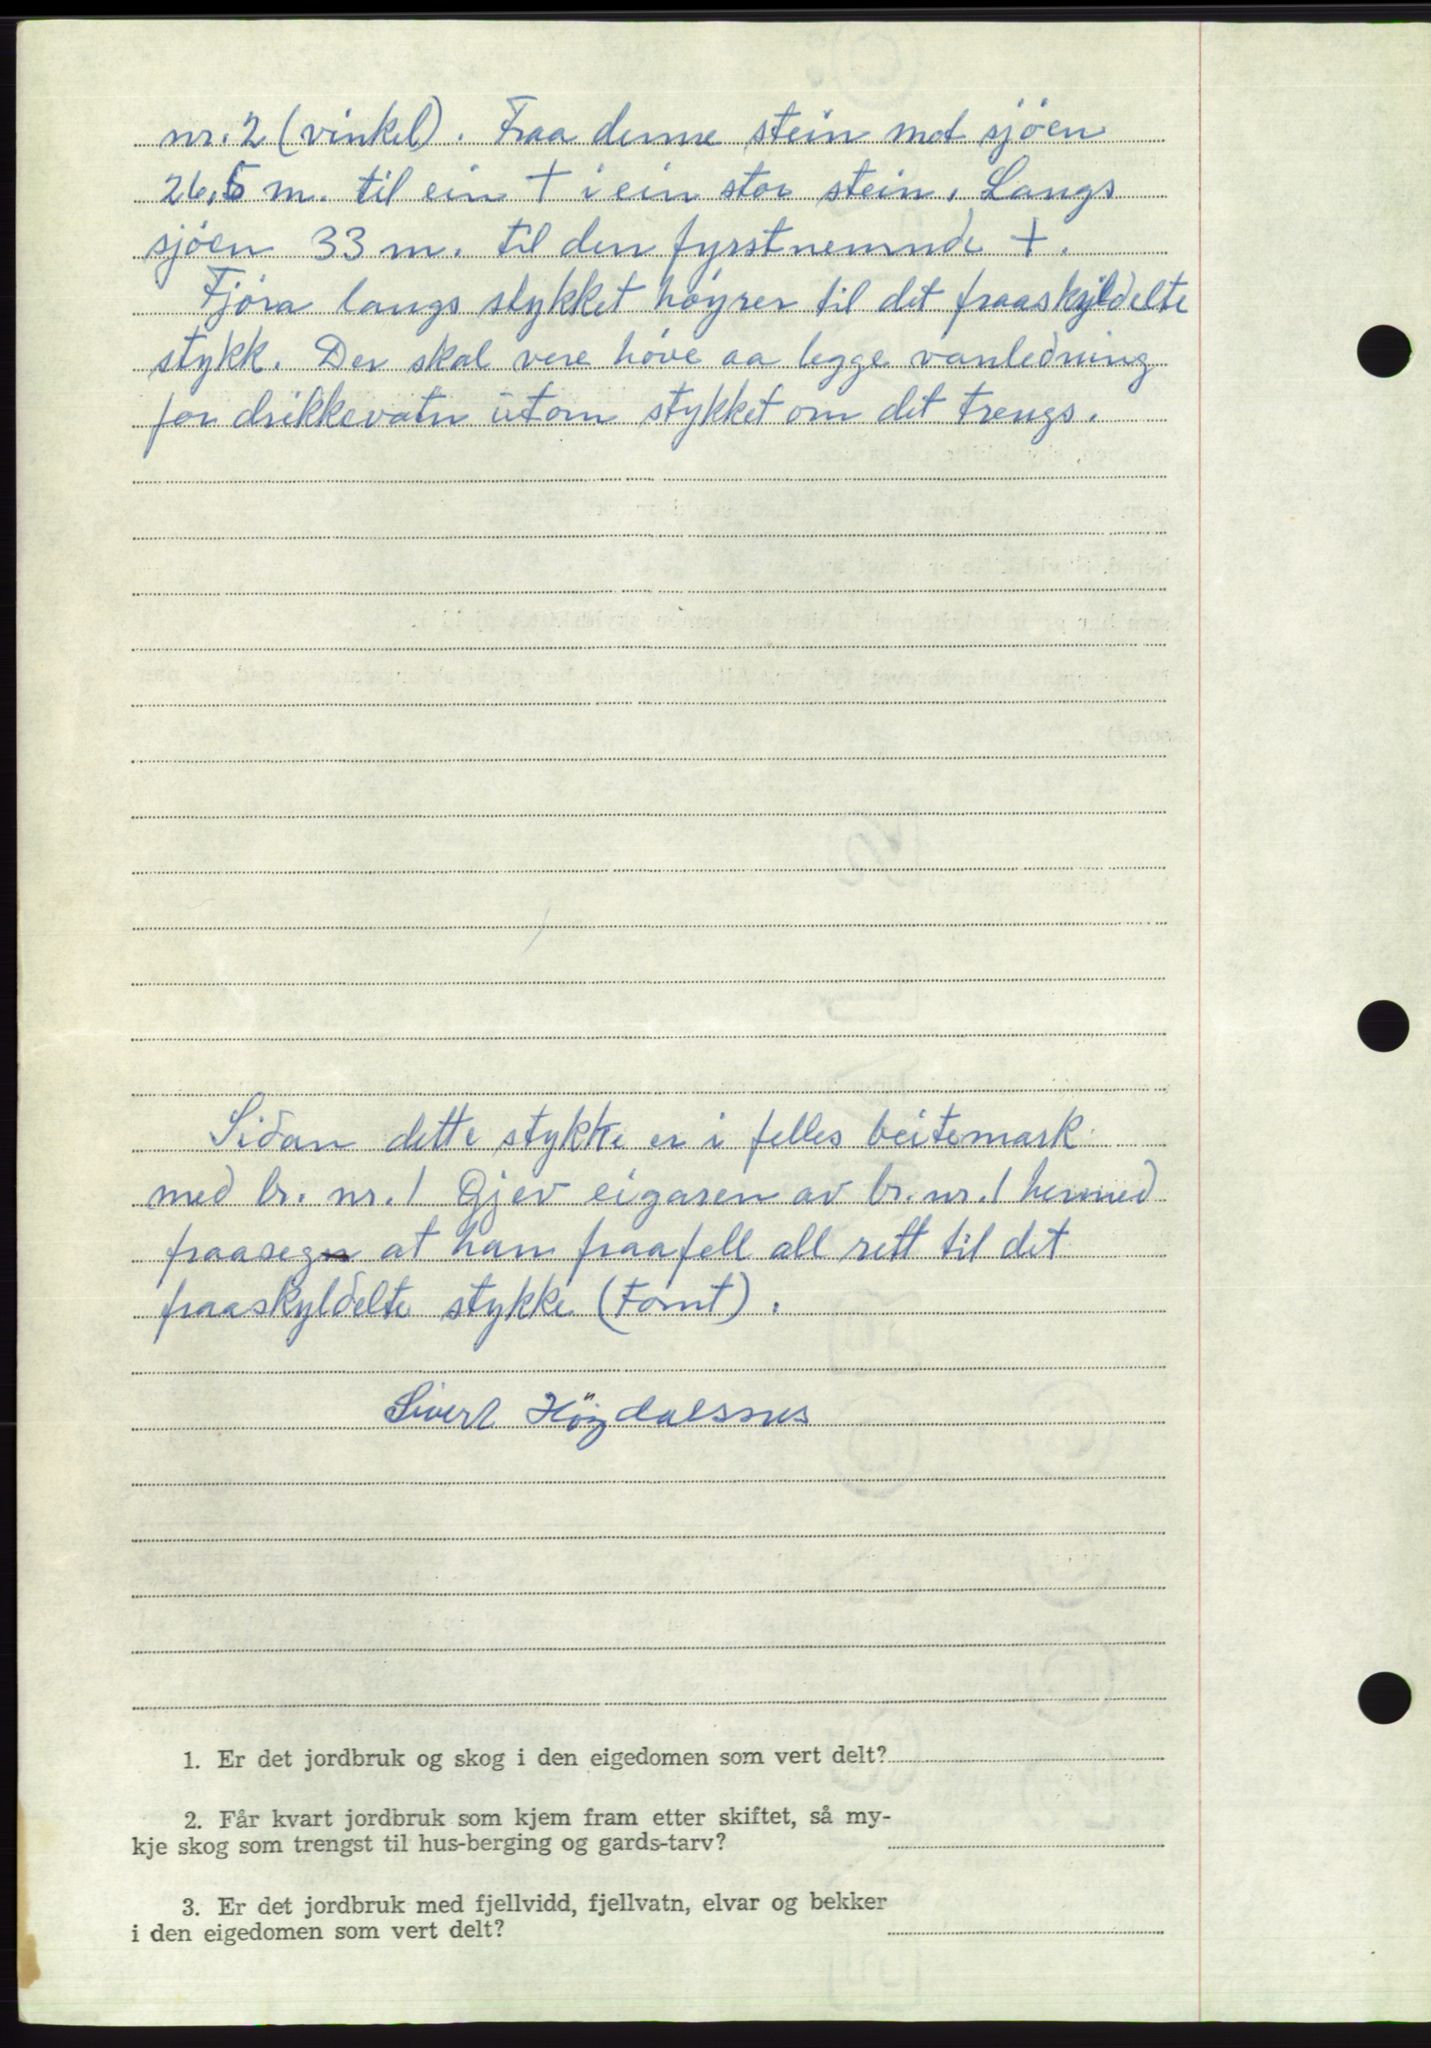 nr. 2 (vinkel). Fraa denne stein mot sjøen
26,5 m. til ein + i ein stor stein. Langs
sjøen 33 m. til den fyrstnemnde +.
Fjøra langs stykket høyrer til det fraaskyldelte
stykk. Der skal vere høve aa legge vanledning
for drikkevatn utom stykket om det trengs.
Sidan dette stykke er i felles beitemark
med br. nr. 1 Gjev eigaren av br. nr. 1 hermed
fraasegn at han fraafell all rett til det
fraaskyldelte stykke (tomt).
Sivert Höydalsnes
1. Er det jordbruk og skog i den eigedomen som vert delt?
2. Får kvart jordbruk som kjem fram etter skiftet, så my-
kje skog som trengst til hus-berging og gards-tarv?
3. Er det jordbruk med fjellvidd, fjellvatn, elvar og bekker
i den eigedomen som vert delt?